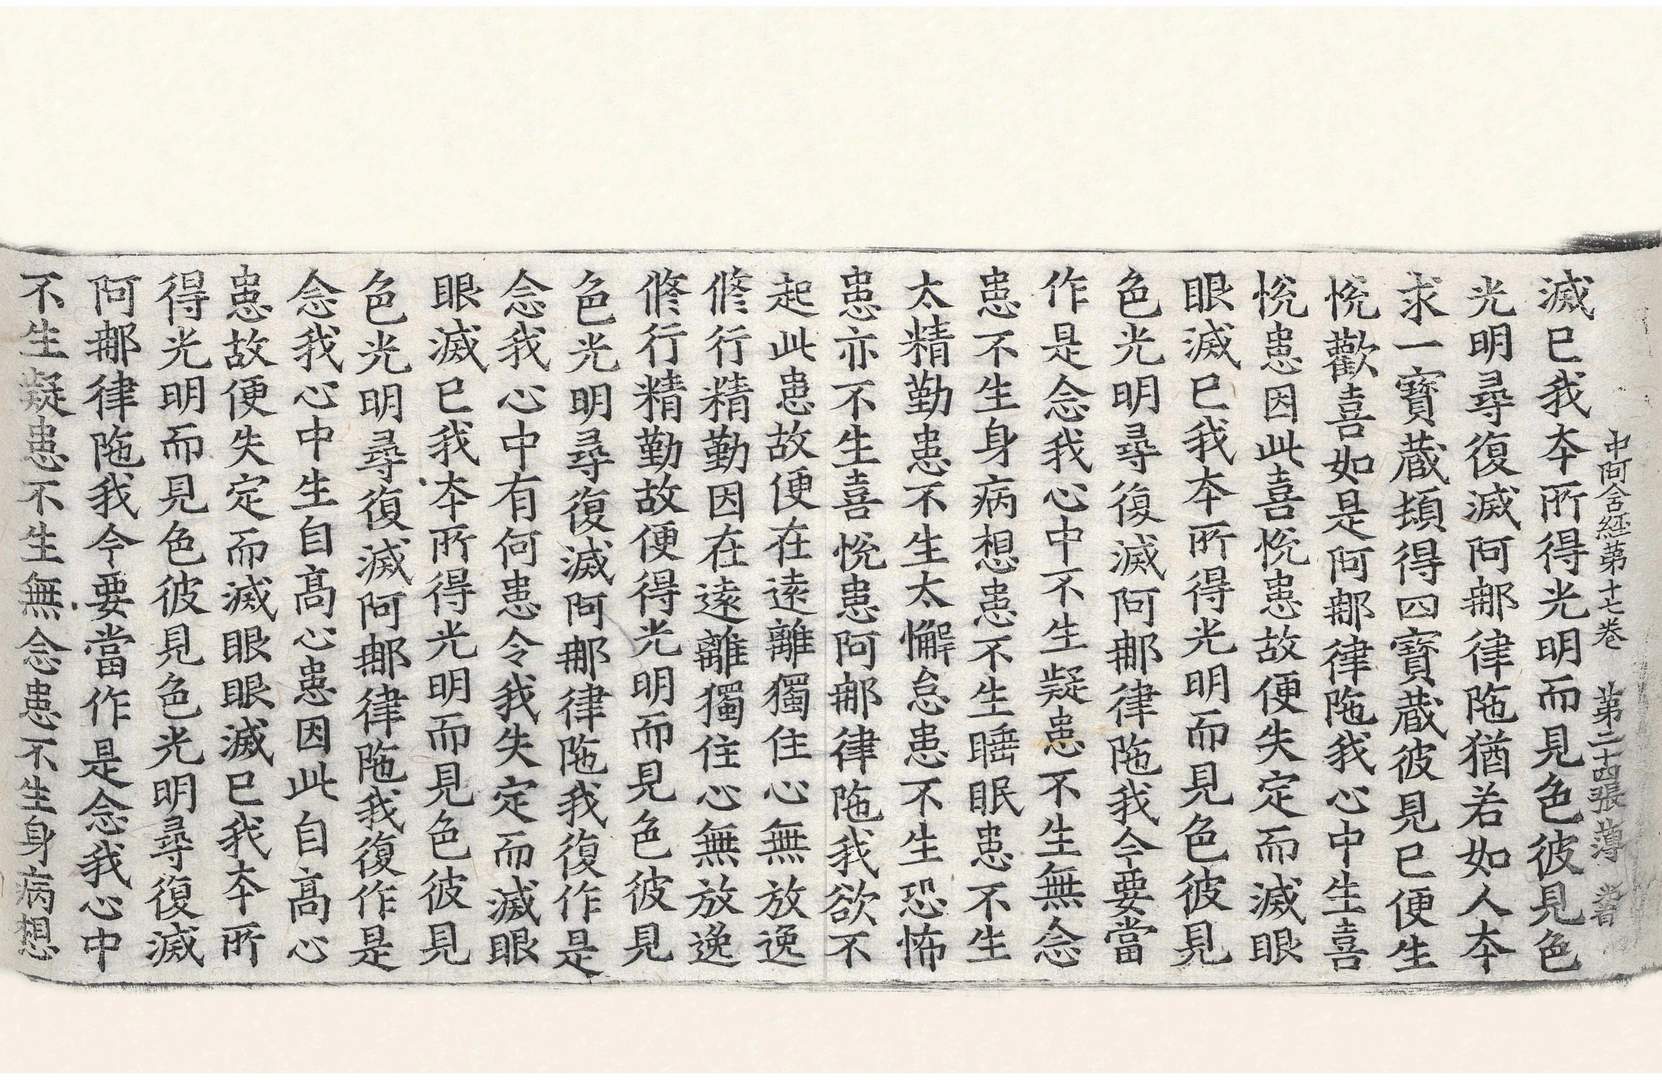 中阿含經第十七卷　第二十四張　薄
滅已我本所得光明而見色彼見色
光明尋復滅阿那律陁猶若如人本
求一寶藏頓得四寶藏彼見已便生
悅歡喜如是阿那律陁我心中生喜
悅患因此喜悅患故便失定而滅眼
眼滅已我本所得光明而見色彼見
色光明尋復滅阿那律陁我今要當
作是念我心中不生疑患不生無念
患不生身病想患不生睡眠患不生
太精勤患不生太懈怠患不生恐怖
患亦不生喜悅患阿那律陁我欲不
起此患故便在遠離獨住心無放逸
脩行精勤因在遠離獨住心無放逸
脩行精勤故便得光明而見色彼見
色光明尋復滅阿那律陁我復作是
念我心中有何患令我失定而滅眼
眼滅已我本所得光明而見色彼見
色光明尋復滅阿那律陁我復作是
念我心中生自高心患因此自高心
患故便失定而滅眼眼滅已我本所
得光明而見色彼見色光明尋復滅
阿那律陁我今要當作是念我心中
不生疑患不生無念患不生身病想